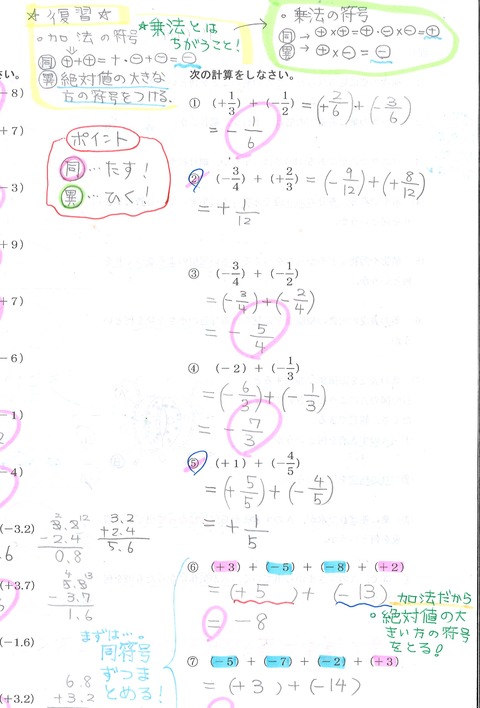 ☆復習☆
・加法の符号
同 ⊕+⊕=+・⊖+⊖=⊖
異 絶対値の大きな
方の符号をつける、
★乗法とは
ちがうこと!
・乗法の符号
同 → ⊕×⊕=⊕・⊖×⊖=⊕
異 → ⊕×⊖=⊖
ポイント
同…たす!
異…ひく!
さい。
-8)
+7)
-3)
+9)
+7)
-6)
-1)
2
-4)
(-3.2)
.6
(+3.7)
(-1.6)
(+3.2)
3.8
-2.4
0.8
3.2
+2.4
5.6
5.3
-3.7
1.6
6.8
+3.2
次の計算をしなさい。
① (+1/3) + (-1/2) = (+2/6) + (-3/6)
= -1/6
② (-3/4) + (+2/3) = (-9/12) + (+8/12)
= +1/12
③ (-3/4) + (-1/2)
= (-3/4) + (-2/4)
= -5/4
④ (-2) + (-1/3)
= (-6/3) + (-1/3)
= -7/3
⑤ (+1) + (-4/5)
= (+5/5) + (-4/5)
= +1/5
⑥ (+3) + (-5) + (-8) + (+2)
= (+5) + (-13)
= -8
加法だから
・絶対値の大
きい方の符号
をとる!
まずは…。
同符号
ずつま
とめる!
⑦ (-5) + (-7) + (-2) + (+3)
= (+3) + (-14)